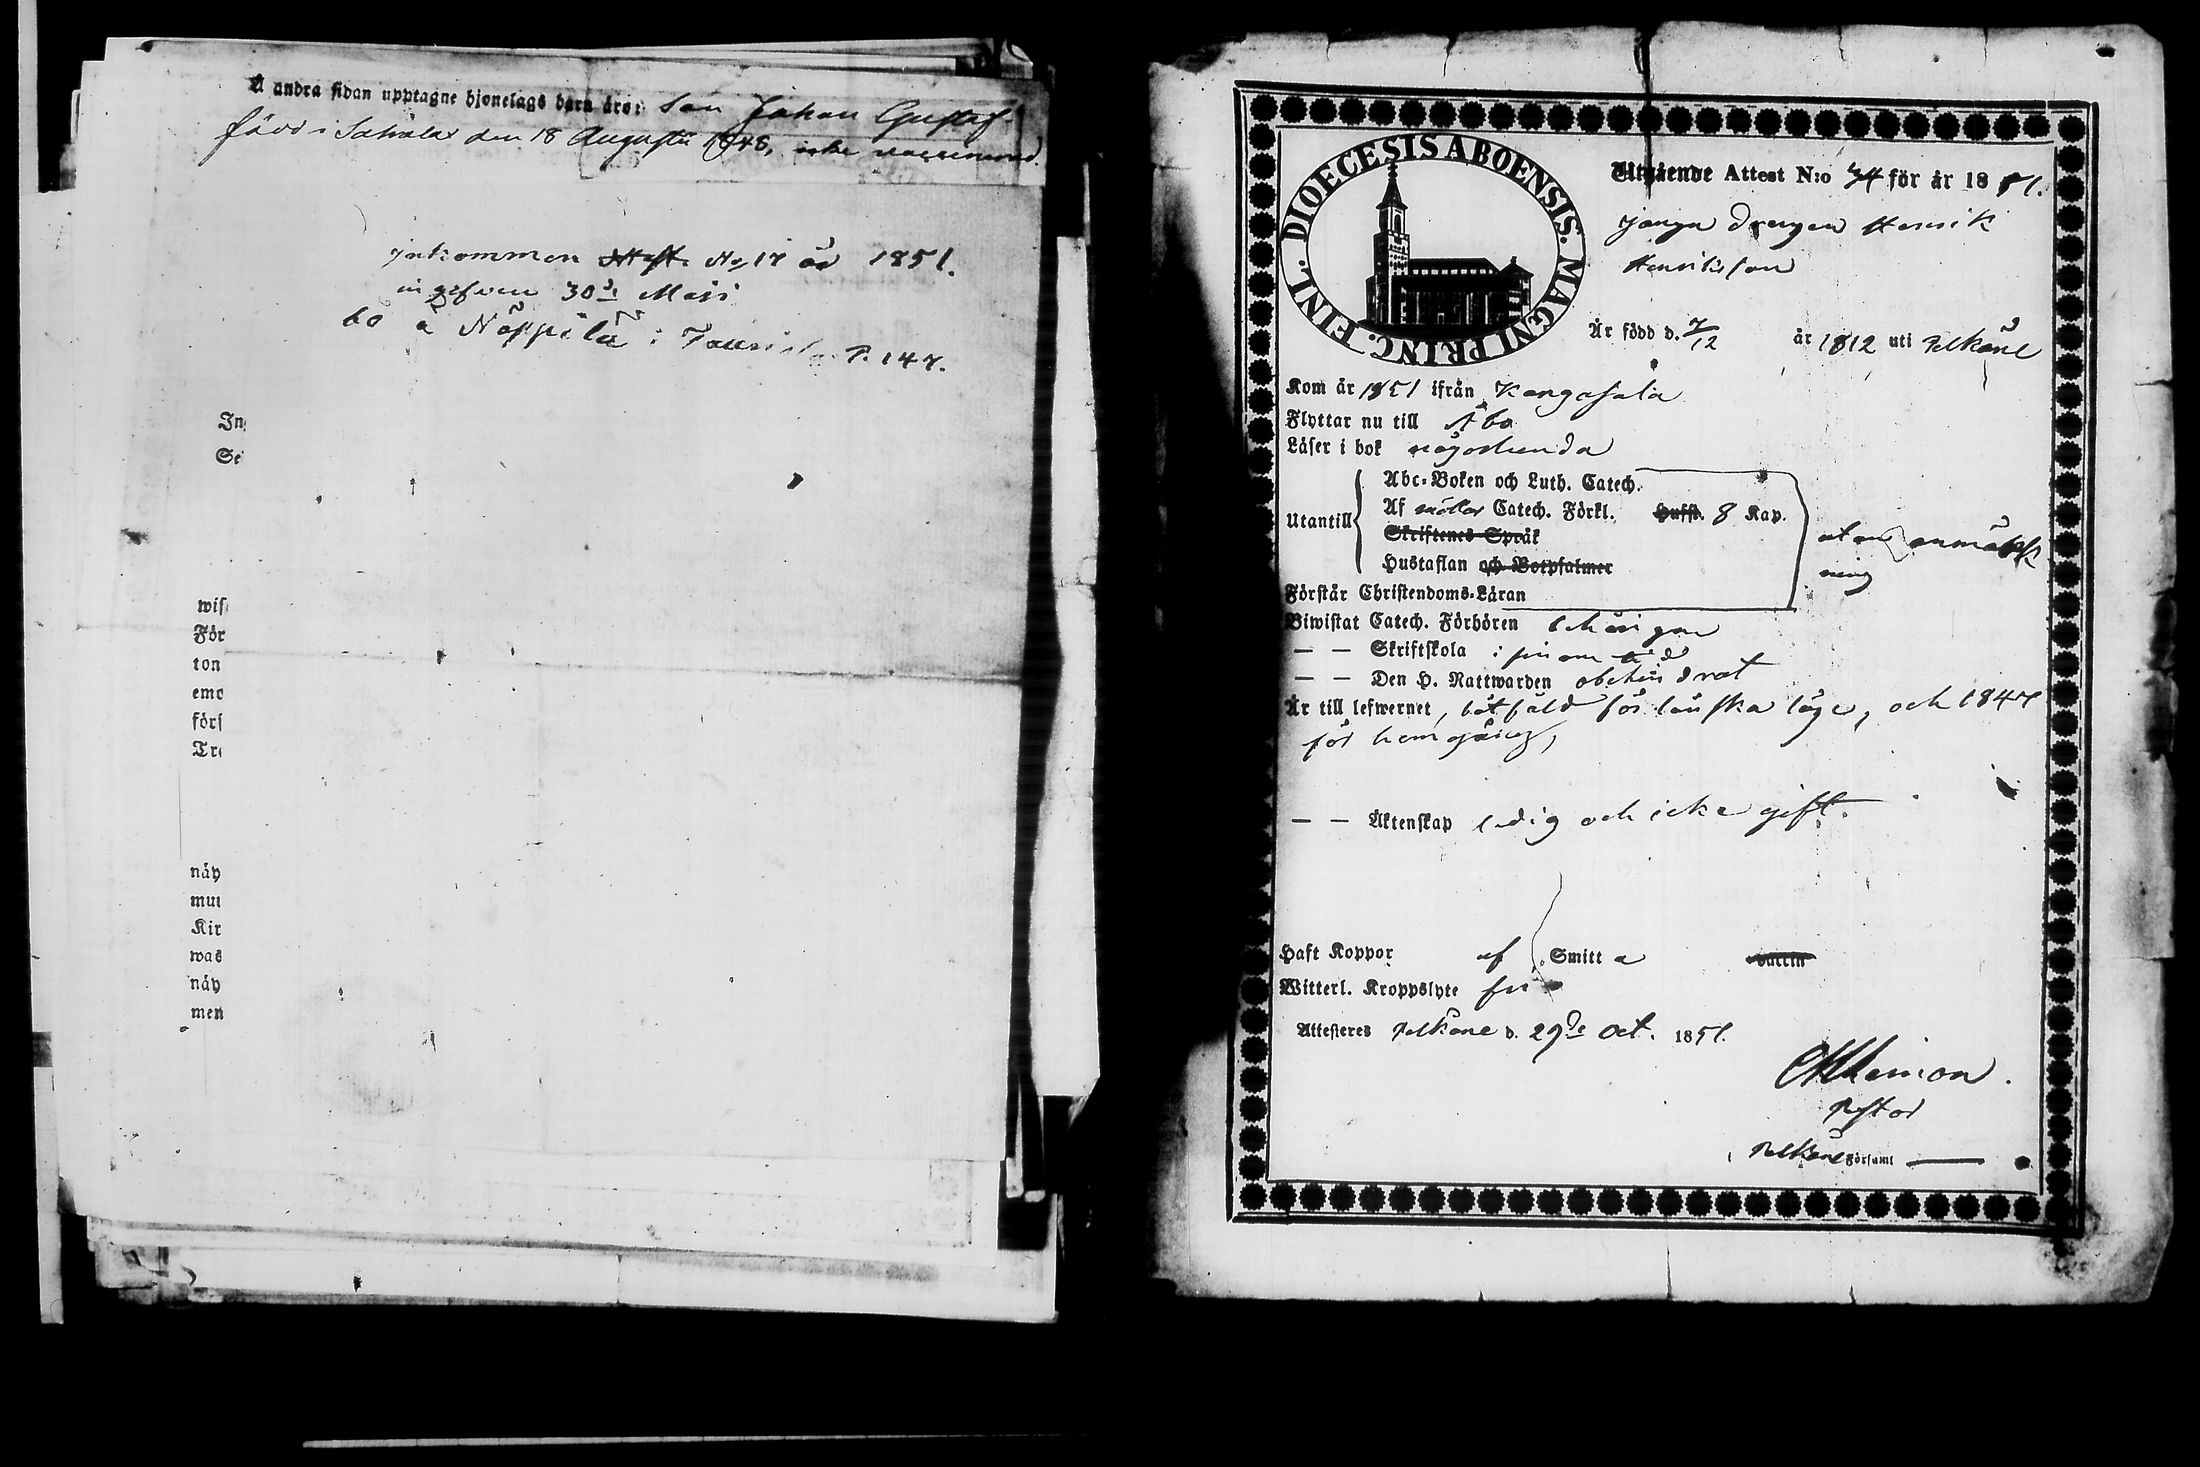 Å andra sidan upptagne hjonelags barn äro: Son Johan Gustaf
född i Sahalax den 18 Augusti 1848, icke vaccinerad.
Inkommen Attest No 17 år 1851.
ingifven 30de Maji
bo å Näppilä i P. 147.
In
Se
wis
För
ton
emo
förs
Tre
näy
mui
Kir
was
näy
men
DIOECESIS ABOENSIS. MAGNI PRINC. FINL.
Utgående Attest N:o 34 för år 1851.
Drengen Henrik
Henriksson
Är född d. 7/12 år 1812 uti Pelkäne
Kom år 1851 ifrån Kangasala
Flyttar nu till Åbo
Läser i bok någorlunda
Utantill
Abc-Boken och Luth. Catech.
Af Catech. Förkl. Hufst. 8 Kap.
Skriftenes Språk
Hustaflan och Botpsalmer
utan anmärk
ning
Förstår Christendoms-Läran
Biwistat Catech. Förhören
— — Skriftskola i sinom tid
— — Den H. Nattwarden obehindrat
Är till lefwernet, bötfäld för lönska läge, och 1847
för hemgång,
— — Äktenskap ledig och icke gift.
Haft Koppor af Smitta vaccin
Witterl. Kroppslyte fri
Attesteres Pelkäne d. 29de Oct. 1851.
Pastor
Pelkäne Församl